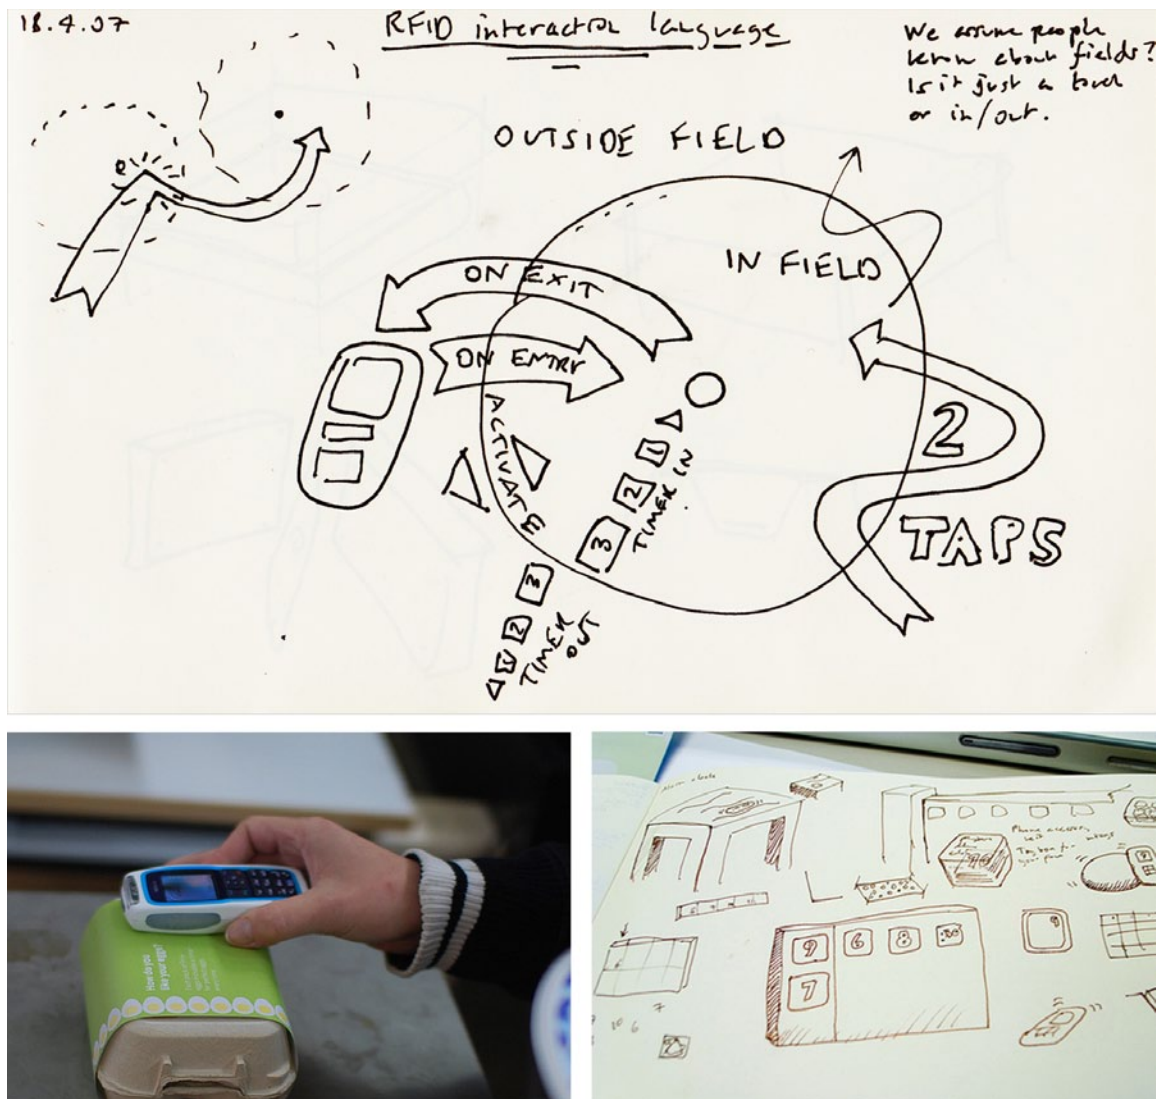 18.4.07
RFID interaction language
We assume people
know about fields?
Is it just a touch
or in/out.
OUTSIDE FIELD
IN FIELD
ON EXIT
ON ENTRY
ACTIVATE
1
2
3
TIMER IN
3
2
1
TIMER
OUT
2
TAPS
How do you
like your eggs?
9
6
8
7